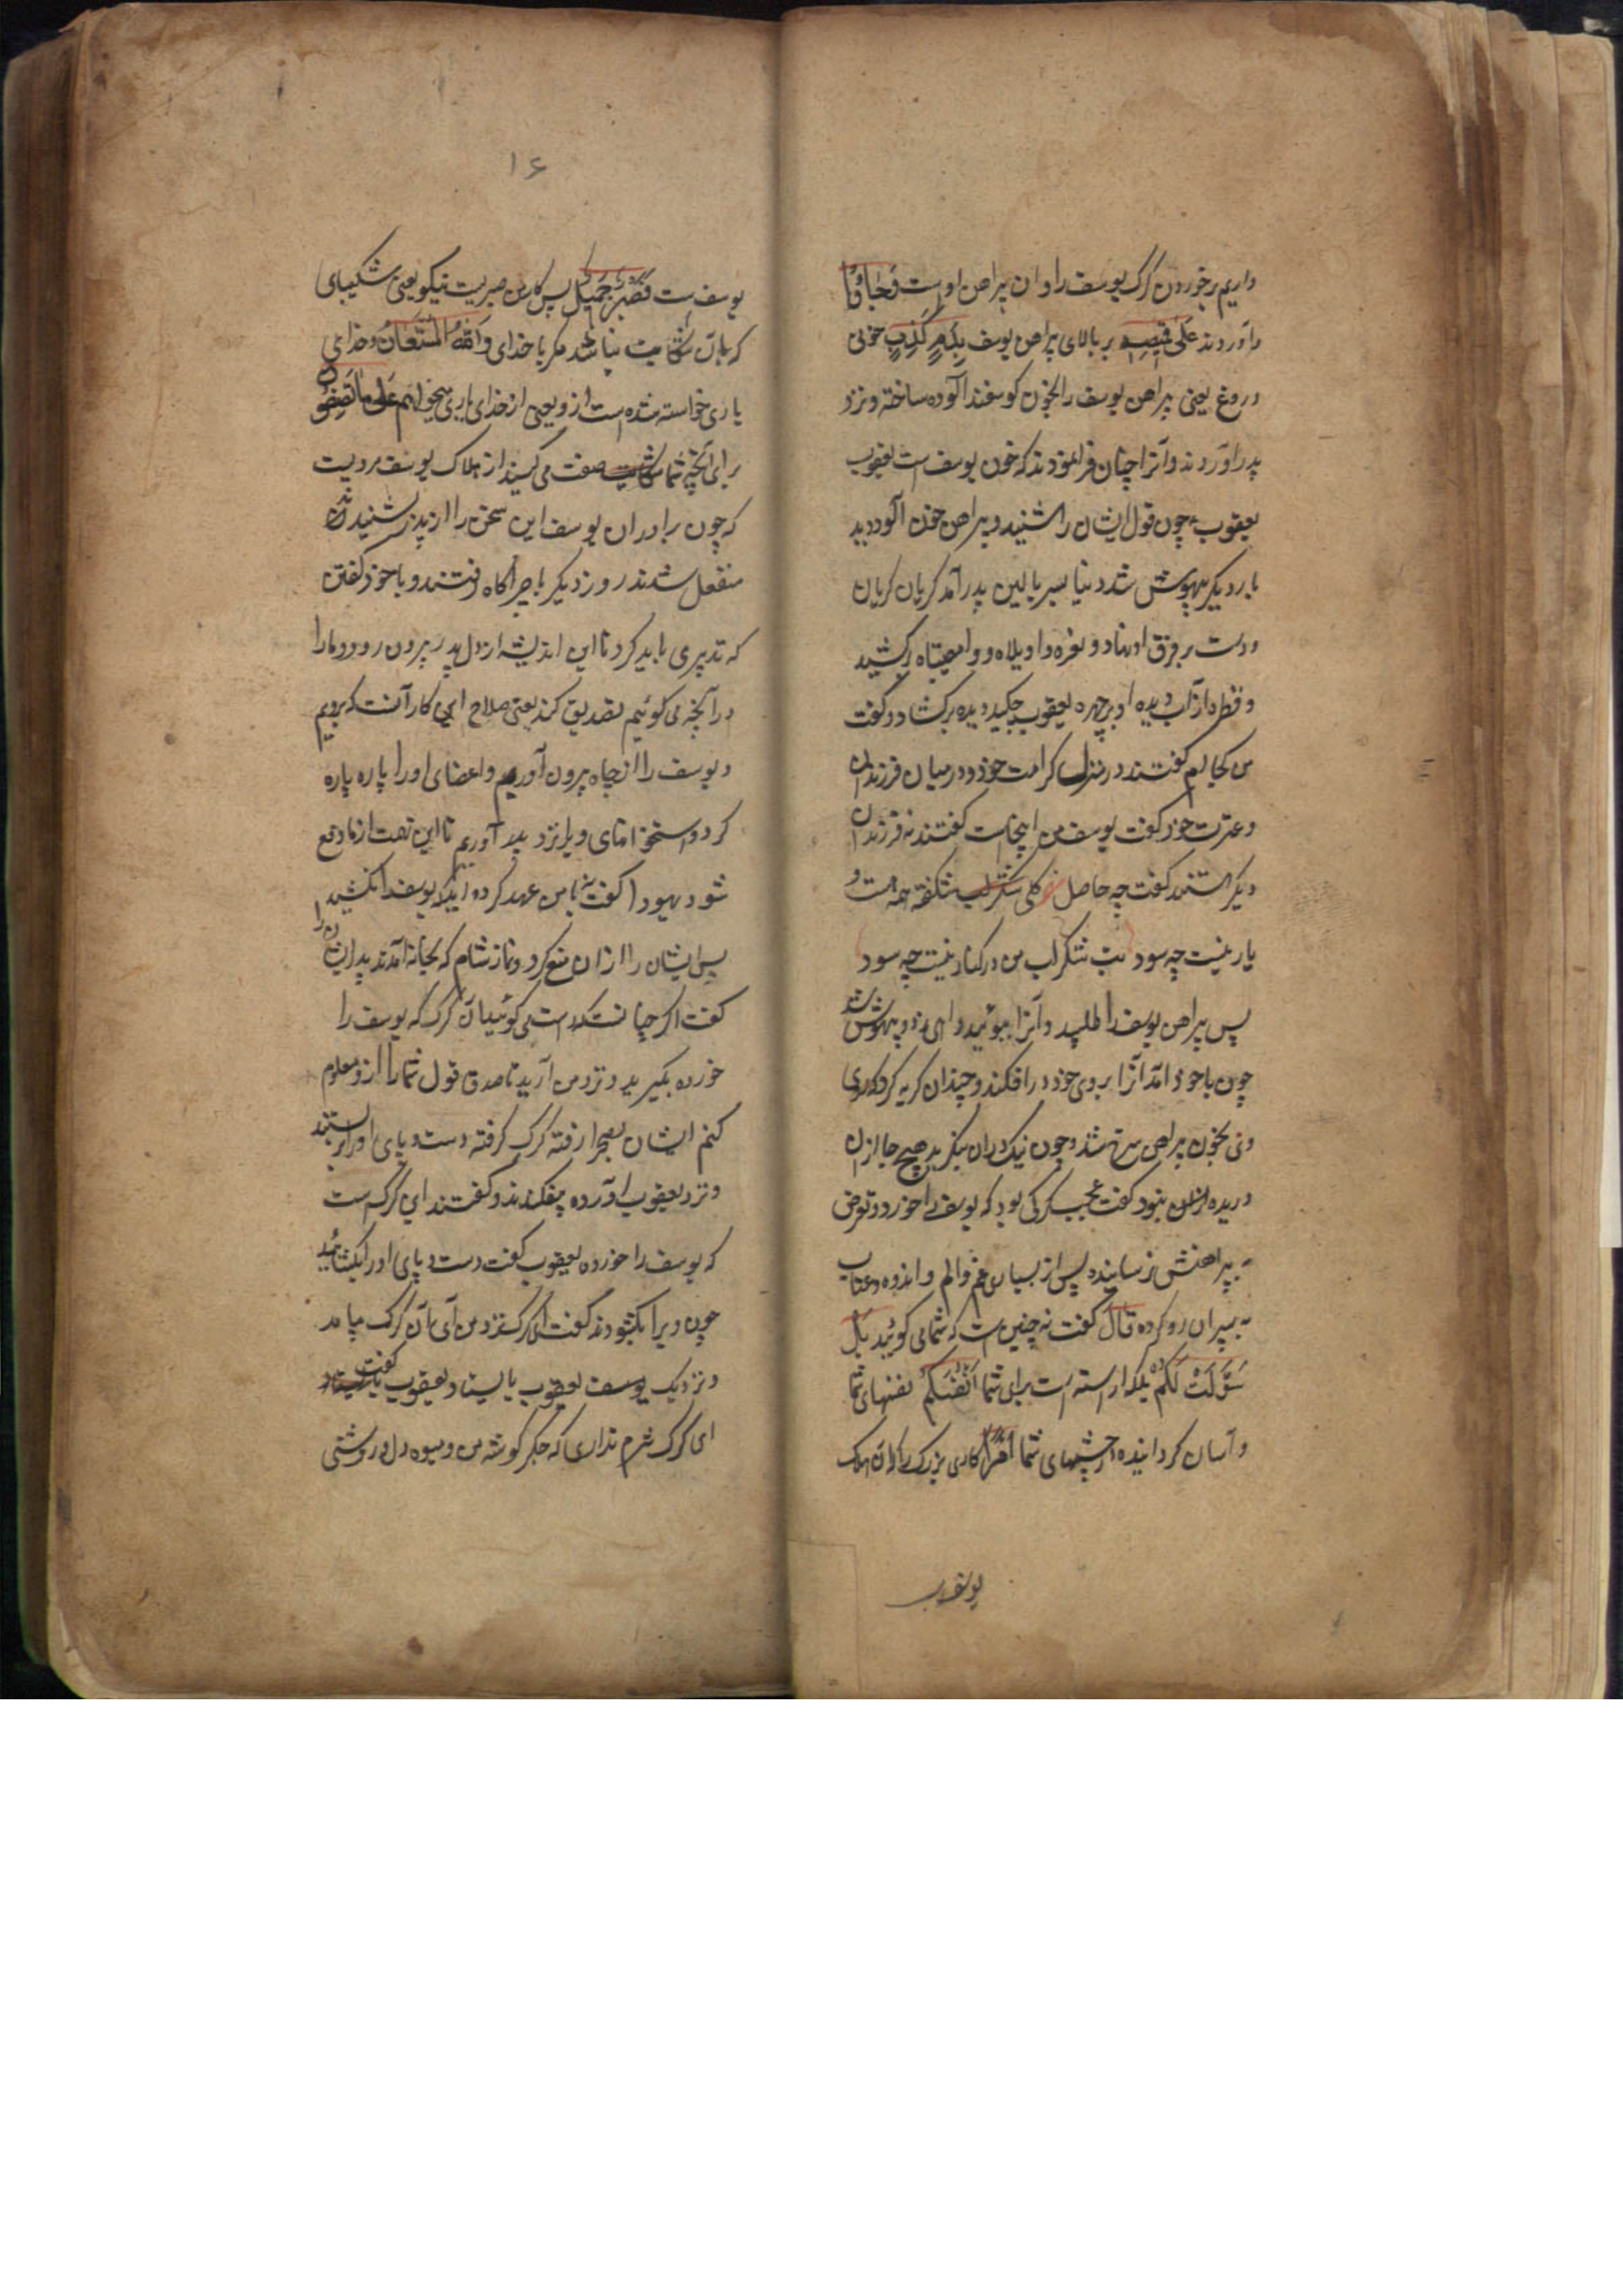 داریم بر خوردن گرگ یوسف را و ان پیراهن اوست وَجَاؤُا
و آوردند عَلٰی قَمِیصِهِ بر بالای پیراهن یوسف بِدَمٍ کَذِبٍ خونی
دروغ یعنی پیراهن یوسف را بخون کوسفند آلوده ساخته و نزد
پدر اوردند و آنرا چنان فرا نمودند که خون یوسف است یعقوب
یعقوب چون قول ایشان را شنید و پیراهن خون آلود دید
بار دیکر بیهوش شد دنیا بسر بالین پدر آمد کریان کریان
و دست بر فرق او نهاد و نعره وا ویلاه و وا مصیبتاه برکشید
و قطره از آب دیده او بر چهره یعقوب چکید دیده برکشاد و کفت
من کجا ام کفتند در منزل کرامت خود و در میان فرزندان
و عترت خود کفت یوسف من اینجاست کفتند نه فرزندان
دیکر هستند کفت چه حاصل کلی شکفته همه هست و
یار نیست چه سود بت شکر لب من در کنار نیست چه سود
پس پیراهن یوسف را طلبید و آنرا ببوئید و اهی زد و بیهوش شد
چون باخود آمد آنرا بروی خود در افکند و چندان کریه کرد که روی
وی بخون پیراهن سرخ شد و چون نیک دران بنکرید هیچ جا از ان
دریده نبود کفت عجب کرکی بود که یوسف را خورد و تعرض
به پیراهنش نرسانیده پس از بسیاری غم و الم و اندوه و عتاب
به پسران رو کرده قَالَ کفت نه چنین است که شما می کوئید بَلْ
سَوَّلَتْ لَکُمْ بلکه اراسته است برای شما اَنْفُسُکُمْ نفسهای شما
و آسان کردانیده در چشمهای شما اَمْرًا کاری بزرک را که آن هلاک
یوسف
۱۶
یوسف است فَصَبْرٌ جَمِیلٌ پس کار من صبریست نیکو یعنی شکیبای
که با آن شکایت نباشد مکر با خدای وَاللّٰهُ الْمُسْتَعَانُ و خدای
یاری خواسته شده است ازو یعنی از خدای یاری میخواهم عَلٰی مَا تَصِفُونَ
بر آنچه شما صفت می کنید از هلاک یوسف مرویست
که چون برادران یوسف این سخن را از پدر بشنیدند
منفعل شدند روز دیکر با چراکاه رفتند و با خود کفتن
که تدبیری باید کرد تا این اندیشه از دل پدر بیرون رود و ما را
در آنچه می کوئیم تصدیق کند یعنی صلاح این کار آنست که برویم
و یوسف را از چاه بیرون آوریم و اعضای اورا پاره پاره
کرده و استخوانهای ویرا نزد پدر آوریم تا این تهمت از ما دفع
شود یهودا کفت نه با من عهد کرده اید که یوسف را نکشید
پس ایشان را از ان منع کرد و نماز شام که بخانه آمدند پدر ایشان را
کفت اکر چنانست که راست می کوئید آن کرک که یوسف را
خورده بکیرید و نزد من آرید تا صدق قول شما را ازو معلوم
کنم ایشان بصحرا رفته کرک کرفته دست و پای اورا بربستند
و نزد یعقوب اورده بیفکندند و کفتند این کرکست
که یوسف را خورده یعقوب کفت دست و پای اورا بکشائید
چون ویرا بکشودند کفت ای کرک نزد من آی آن کرک بیامد
و نزدیک یعقوب بایستاد یعقوب کفت
ای کرک شرم نداری که جکر کوشه من و میوه دل و روشنی